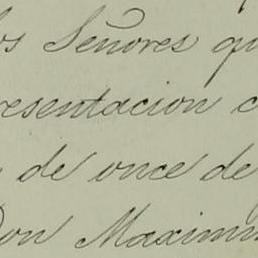 los Señores qu
resentacion c
de once de
Don Maximi